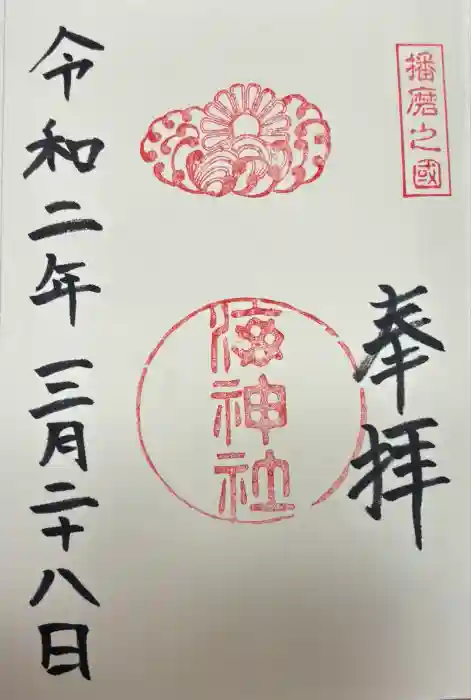 播磨之國
奉拝
海神社
令和二年三月二十八日